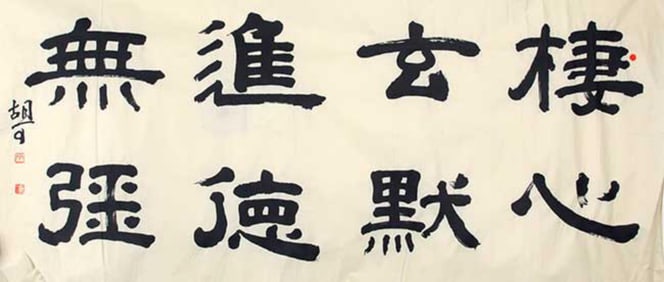 棲心
玄默
進德
無彊
胡可